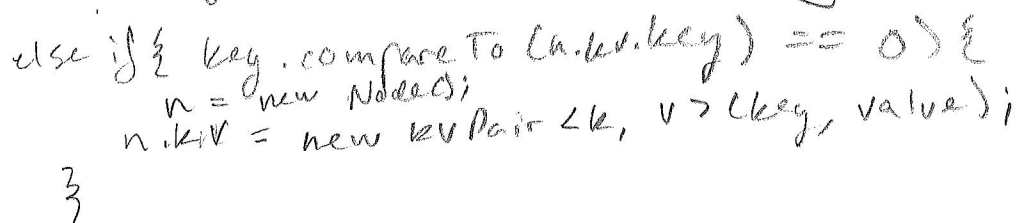 else if { key.compareTo (n.kv.key) == 0) {
n = new Node();
n.kv = new kvPair <k, v> (key, value);
}